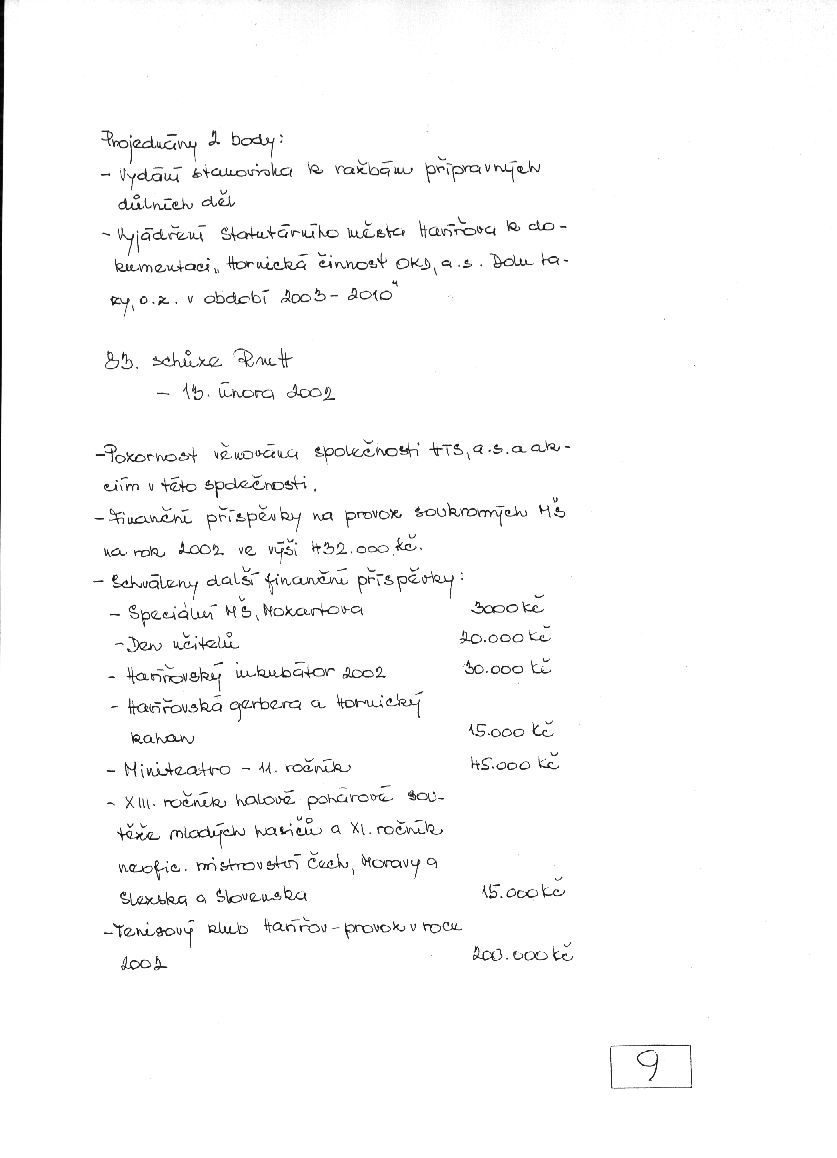 Projednány 2 body:
- Vydání stanoviska k ražbám přípravných
důlních děl
- Vyjádření Statutárního města Havířova k do-
kumentaci „Hornická činnost OKD, a.s. Dolu La-
zy, o.z. v období 2003 - 2010"
83. schůze RmH
- 13. února 2002
- Pozornost věnována společnosti HTS, a.s. a ak-
ciím v této společnosti.
- Finanční příspěvky na provoz soukromých MŠ
na rok 2002 ve výši 432.000 Kč.
- Schváleny další finanční příspěvky:
- Speciální MŠ, Mozartova 3000 Kč
- Den učitelů 20.000 Kč
- Havířovský inkubátor 2002 30.000 Kč
- Havířovská gerbera a Hornický
kahan 15.000 Kč
- Miniteatro - 11. ročník 45.000 Kč
- XIII. ročník halové pohárové sou-
těže mladých hasičů a XI. ročník
neofic. mistrovství Čech, Moravy a
Slezska a Slovenska 15.000 Kč
- Tenisový klub Havířov - provoz v roce
2002 200.000 Kč
9